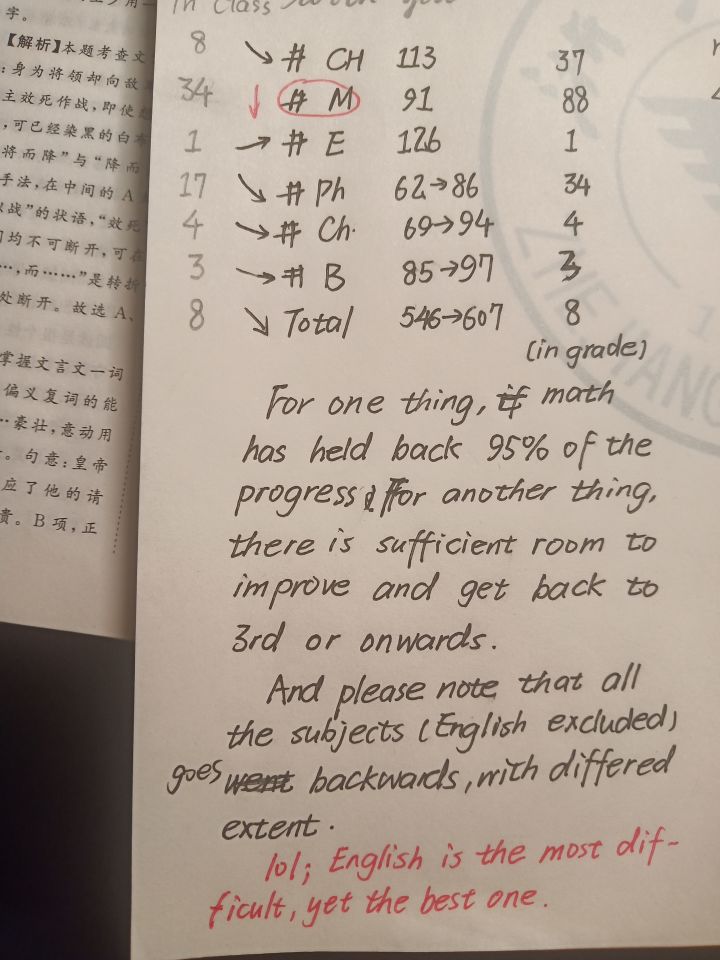 in Class
8 ↘ # CH 113 37
34 ↓ # M 91 88
1 → # E 126 1
17 ↘ # Ph 62→86 34
4 ↘ # Ch. 69→94 4
3 → # B 85→97 3
8 ↘ Total 546→607 8
(in grade)
For one thing, if math
has held back 95% of the
progress; For another thing,
there is sufficient room to
improve and get back to
3rd or onwards.
And please note that all
the subjects (English excluded)
goes went backwards, with differed
extent.
lol; English is the most dif-
ficult, yet the best one.
字。
【解析】本题考查文
:身为将领却向敌
主效死作战,即使
,可已经染黑的白布
将而降”与“降而
手法,在中间的 A
以战”的状语,“效死
均不可断开,可在
…,而……”是转折
处断开。故选 A、
掌握文言文一词
偏义复词的能
…豪壮,意动用
。句意:皇帝
应了他的请
贵。B 项,正
ZHEJIANG